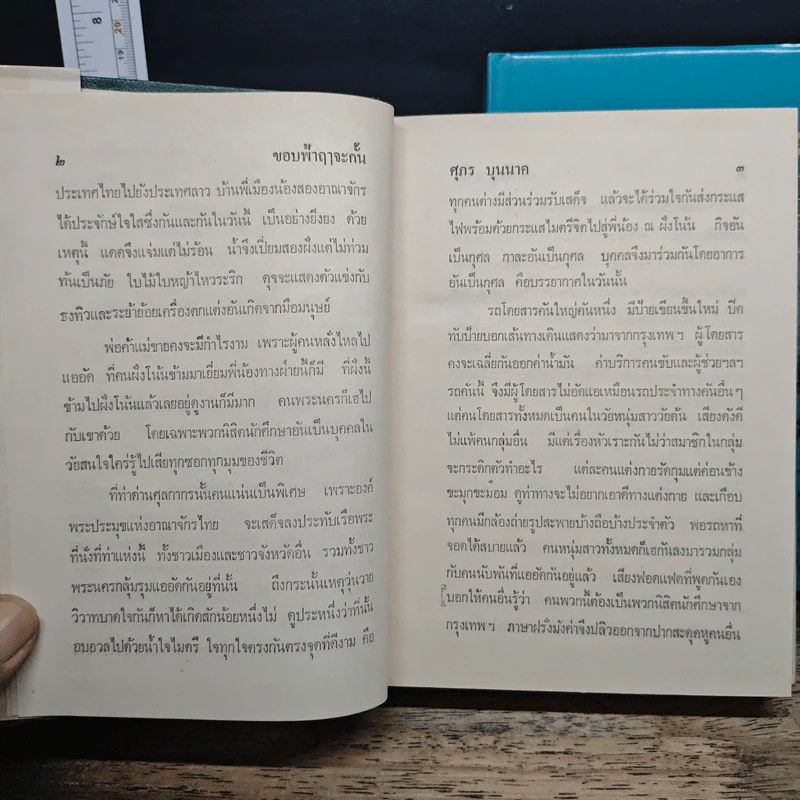 8
20
19
๒
ขอบฟ้าฤาจะกั้น
ประเทศไทยไปยังประเทศลาว บ้านพี่เมืองน้องสองอาณาจักร
ได้ประจักษ์ใจใสซึ่งกันและกันในวันนี้ เป็นอย่างยิ่งยง ด้วย
เหตุนี้ แดดจึงแจ่มแต่ไม่ร้อน น้ำจึงเปี่ยมสองฝั่งแต่ไม่ท่วม
ท้นเป็นภัย ใบไม้ใบหญ้าไหวระริก ดุจจะแสดงตัวแข่งกับ
ธงทิวและระย้าย้อยเครื่องตกแต่งอันเกิดจากมือมนุษย์
พ่อค้าแม่ขายคงจะมีกำไรงาม เพราะผู้คนหลั่งไหลไป
แออัด ที่คนฝั่งโน้นข้ามมาเยี่ยมพี่น้องทางฝ่ายนี้ก็มี ที่ฝั่งนี้
ข้ามไปฝั่งโน้นแล้วเลยอยู่ดูงานก็มีมาก คนพระนครก็เฮไป
กับเขาด้วย โดยเฉพาะพวกนิสิตนักศึกษาอันเป็นบุคคลใน
วัยสนใจใคร่รู้ไปเสียทุกซอกทุกมุมของชีวิต
ที่ท่าด่านศุลกากรนั้นคนแน่นเป็นพิเศษ เพราะองค์
พระประมุขแห่งอาณาจักรไทย จะเสด็จลงประทับเรือพระ
ที่นั่งที่ท่าแห่งนี้ ทั้งชาวเมืองและชาวจังหวัดอื่น รวมทั้งชาว
พระนครกลุ้มรุมแออัดกันอยู่ที่นั้น ถึงกระนั้นเหตุวุ่นวาย
วิวาทบาดใจกันก็หาได้เกิดสักน้อยหนึ่งไม่ ดูประหนึ่งว่าที่นั้น
อบอวลไปด้วยน้ำใจไมตรี ใจทุกใจตรงกันตรงจุดที่ดีงาม คือ
ศุภร บุนนาค
๓
ทุกคนต่างมีส่วนร่วมรับเสด็จ แล้วจะได้ร่วมใจกันส่งกระแส
ไฟพร้อมด้วยกระแสไมตรีจิตไปสู่พี่น้อง ณ ฝั่งโน้น กิจอัน
เป็นกุศล กาละอันเป็นกุศล บุคคลจึงมาร่วมกันโดยอาการ
อันเป็นกุศล คือบรรยากาศในวันนั้น
รถโดยสารคันใหญ่คันหนึ่ง มีป้ายเขียนขึ้นใหม่ ปิด
ทับป้ายบอกเส้นทางเดินแสดงว่ามาจากกรุงเทพฯ ผู้โดยสาร
คงจะเฉลี่ยกันออกค่าน้ำมัน ค่าบริการคนขับและผู้ช่วยฯลฯ
รถคันนี้ จึงมีผู้โดยสารไม่อัดแอเหมือนรถประจำทางคันอื่นๆ
แต่คนโดยสารทั้งหมดเป็นคนในวัยหนุ่มสาววัยต้น เสียงดังดี
ไม่แพ้คนกลุ่มอื่น มีแต่เรื่องหัวเราะกันไม่ว่าสมาชิกในกลุ่ม
จะกระดิกตัวทำอะไร แต่ละคนแต่งกายรัดกุมแต่ค่อนข้าง
ขะมุกขะมอม ดูท่าทางจะไม่อยากเอาดีทางแต่งกาย และเกือบ
ทุกคนมีกล้องถ่ายรูปสะพายบ้างถือบ้างประจำตัว พอรถหาที่
จอดได้สบายแล้ว คนหนุ่มสาวทั้งหมดก็เฮกันลงมารวมกลุ่ม
กับคนนับพันที่แออัดกันอยู่แล้ว เสียงฟอดแฟดที่พูดกันเอง
บอกให้คนอื่นรู้ว่า คนพวกนี้ต้องเป็นพวกนิสิตนักศึกษาจาก
กรุงเทพฯ ภาษาฝรั่งมังค่าจึงปลิวออกจากปากสะดุดหูคนอื่น